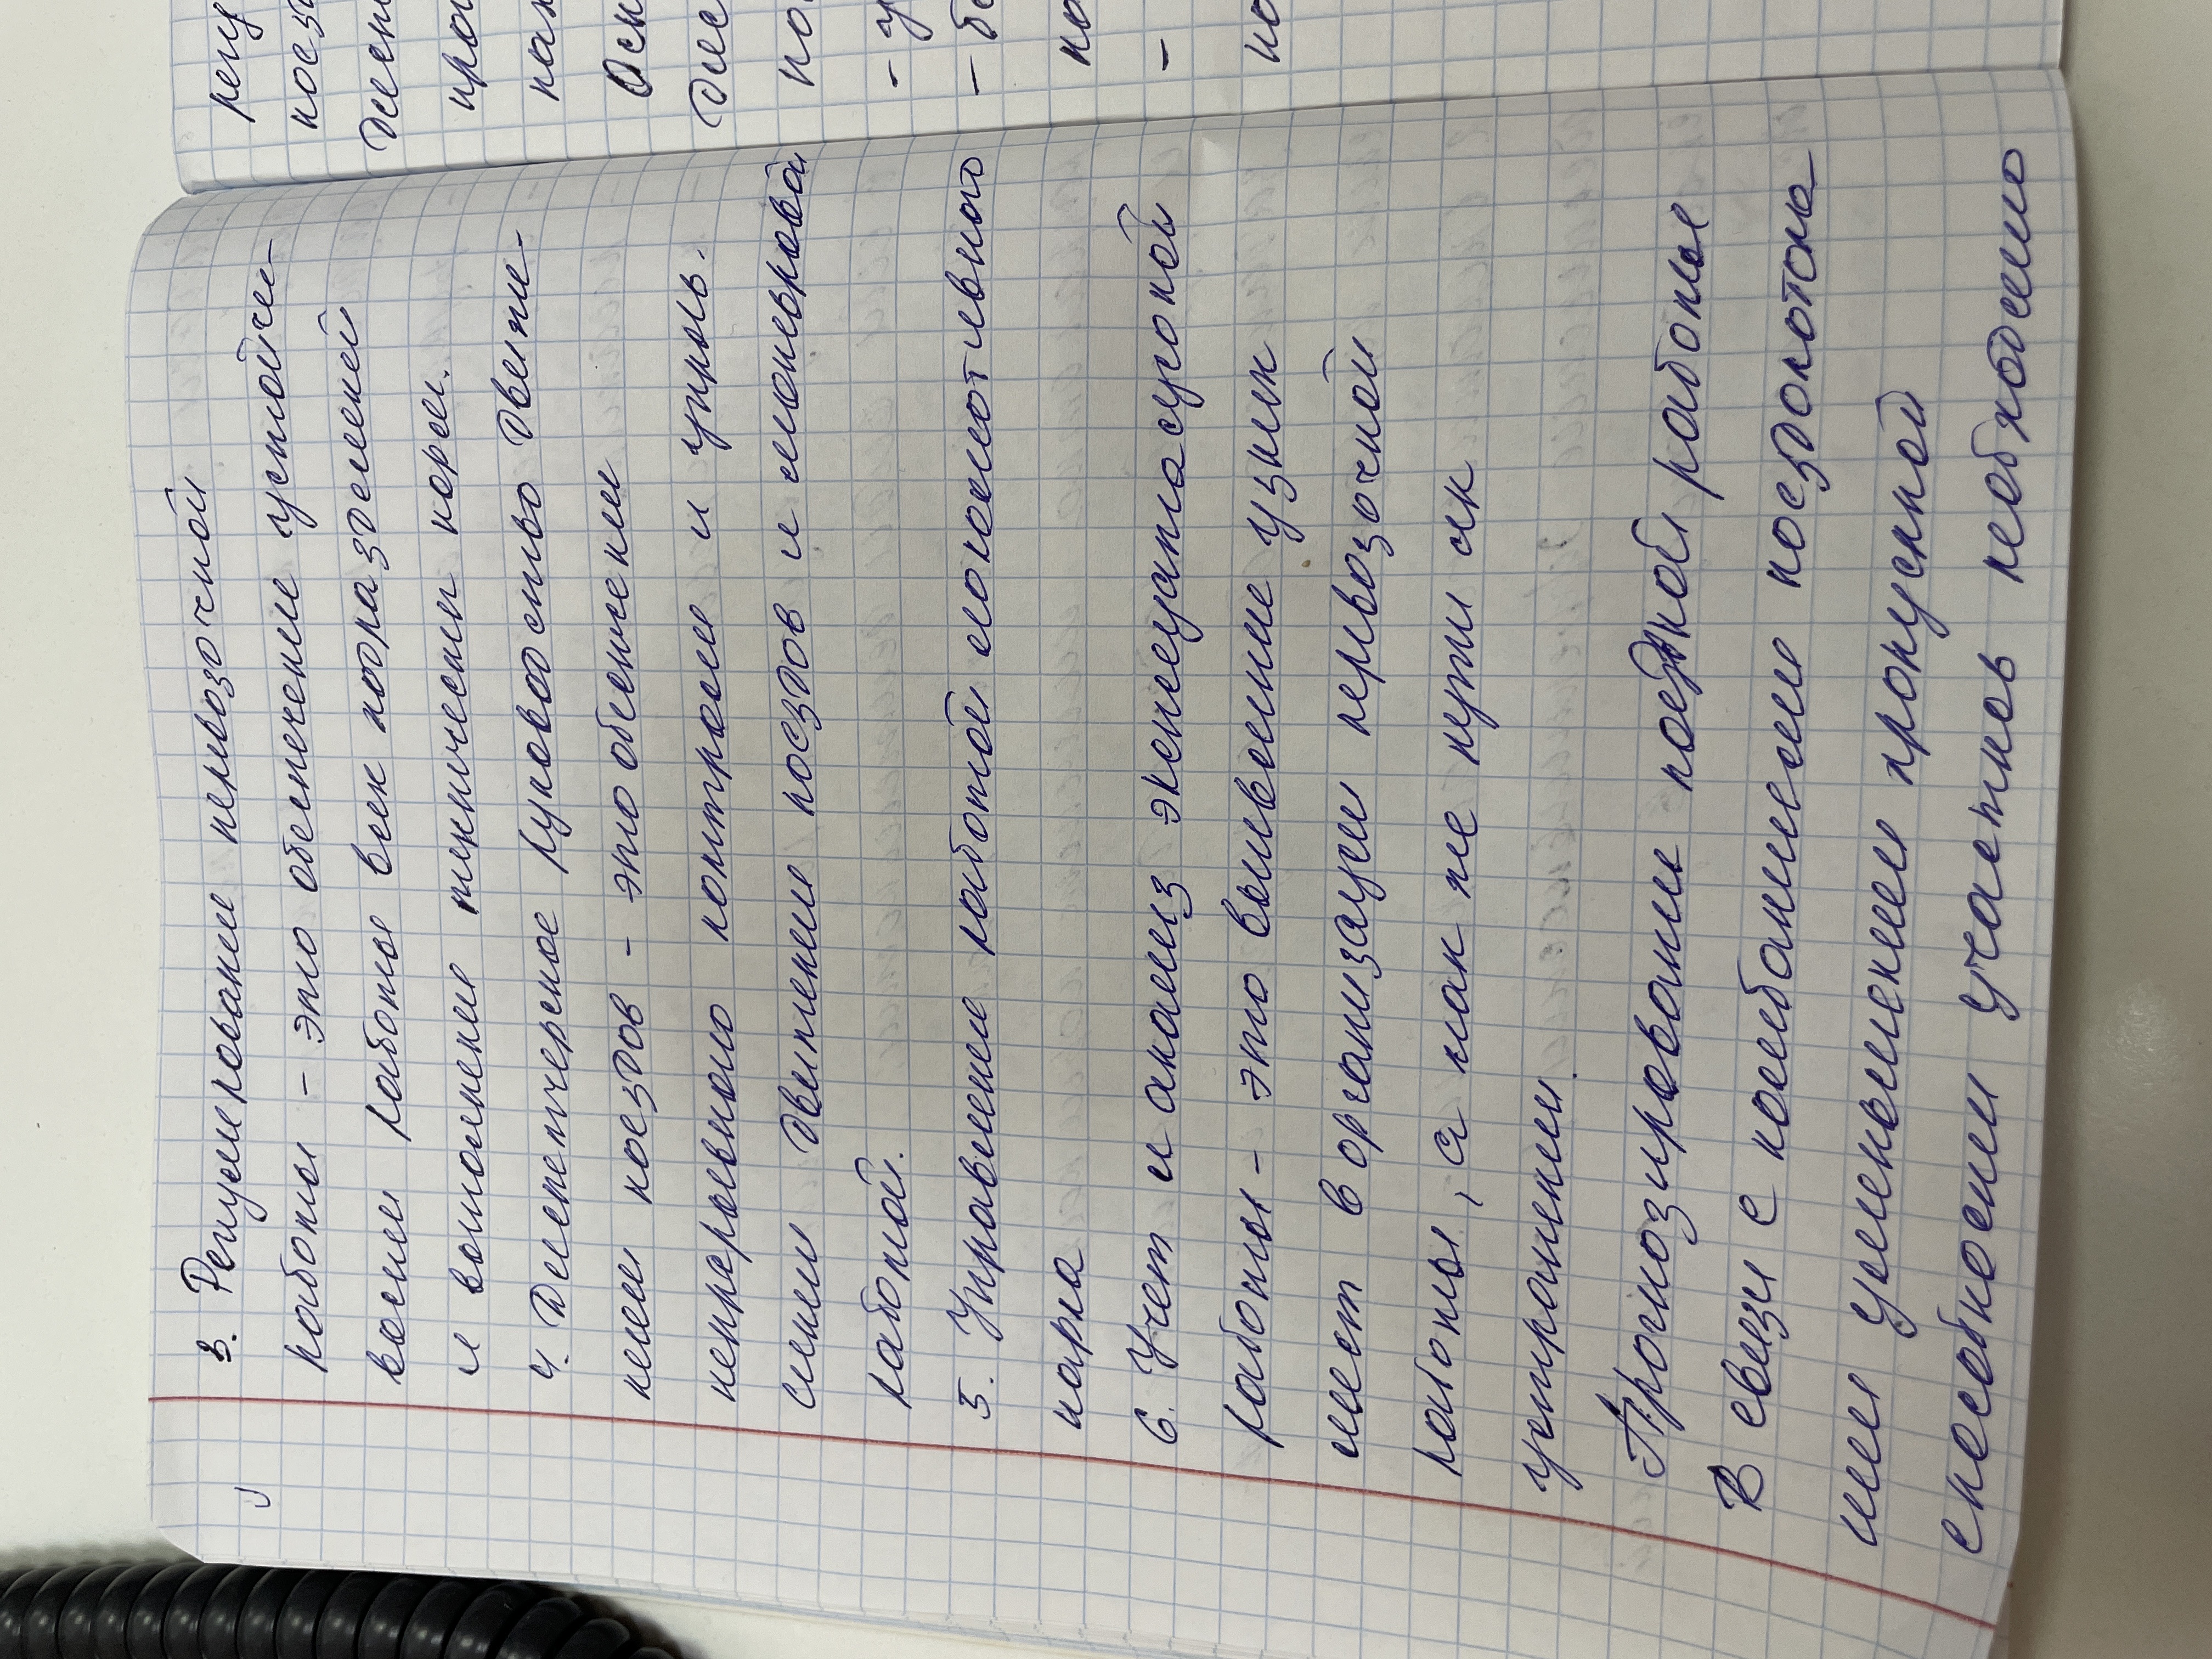 3. Регулирование перевозочной
работы - это обеспечение устойчи-
вости работы всех подразделений
и выполнение технических норм.
4. Диспетчерское руководство движе-
нием поездов - это обеспечении
непрерывного контроля и упрвль.
ними движение поездов и маневровой
работой.
5. Управление работой локомотивного
парка
6. Учет и анализ эксплуатасуонной
работы - это выявление узких
мест в организации перевозочной
работы, а так же пути их
устранении.
Прогнозировании поездной работы
В связи с колебаниями поездопото-
ми уменьшением пропускной
способности участков необходимо
регу
поез
жен
про
пан
Осн
дис
по
- у
- бе
по
-
по